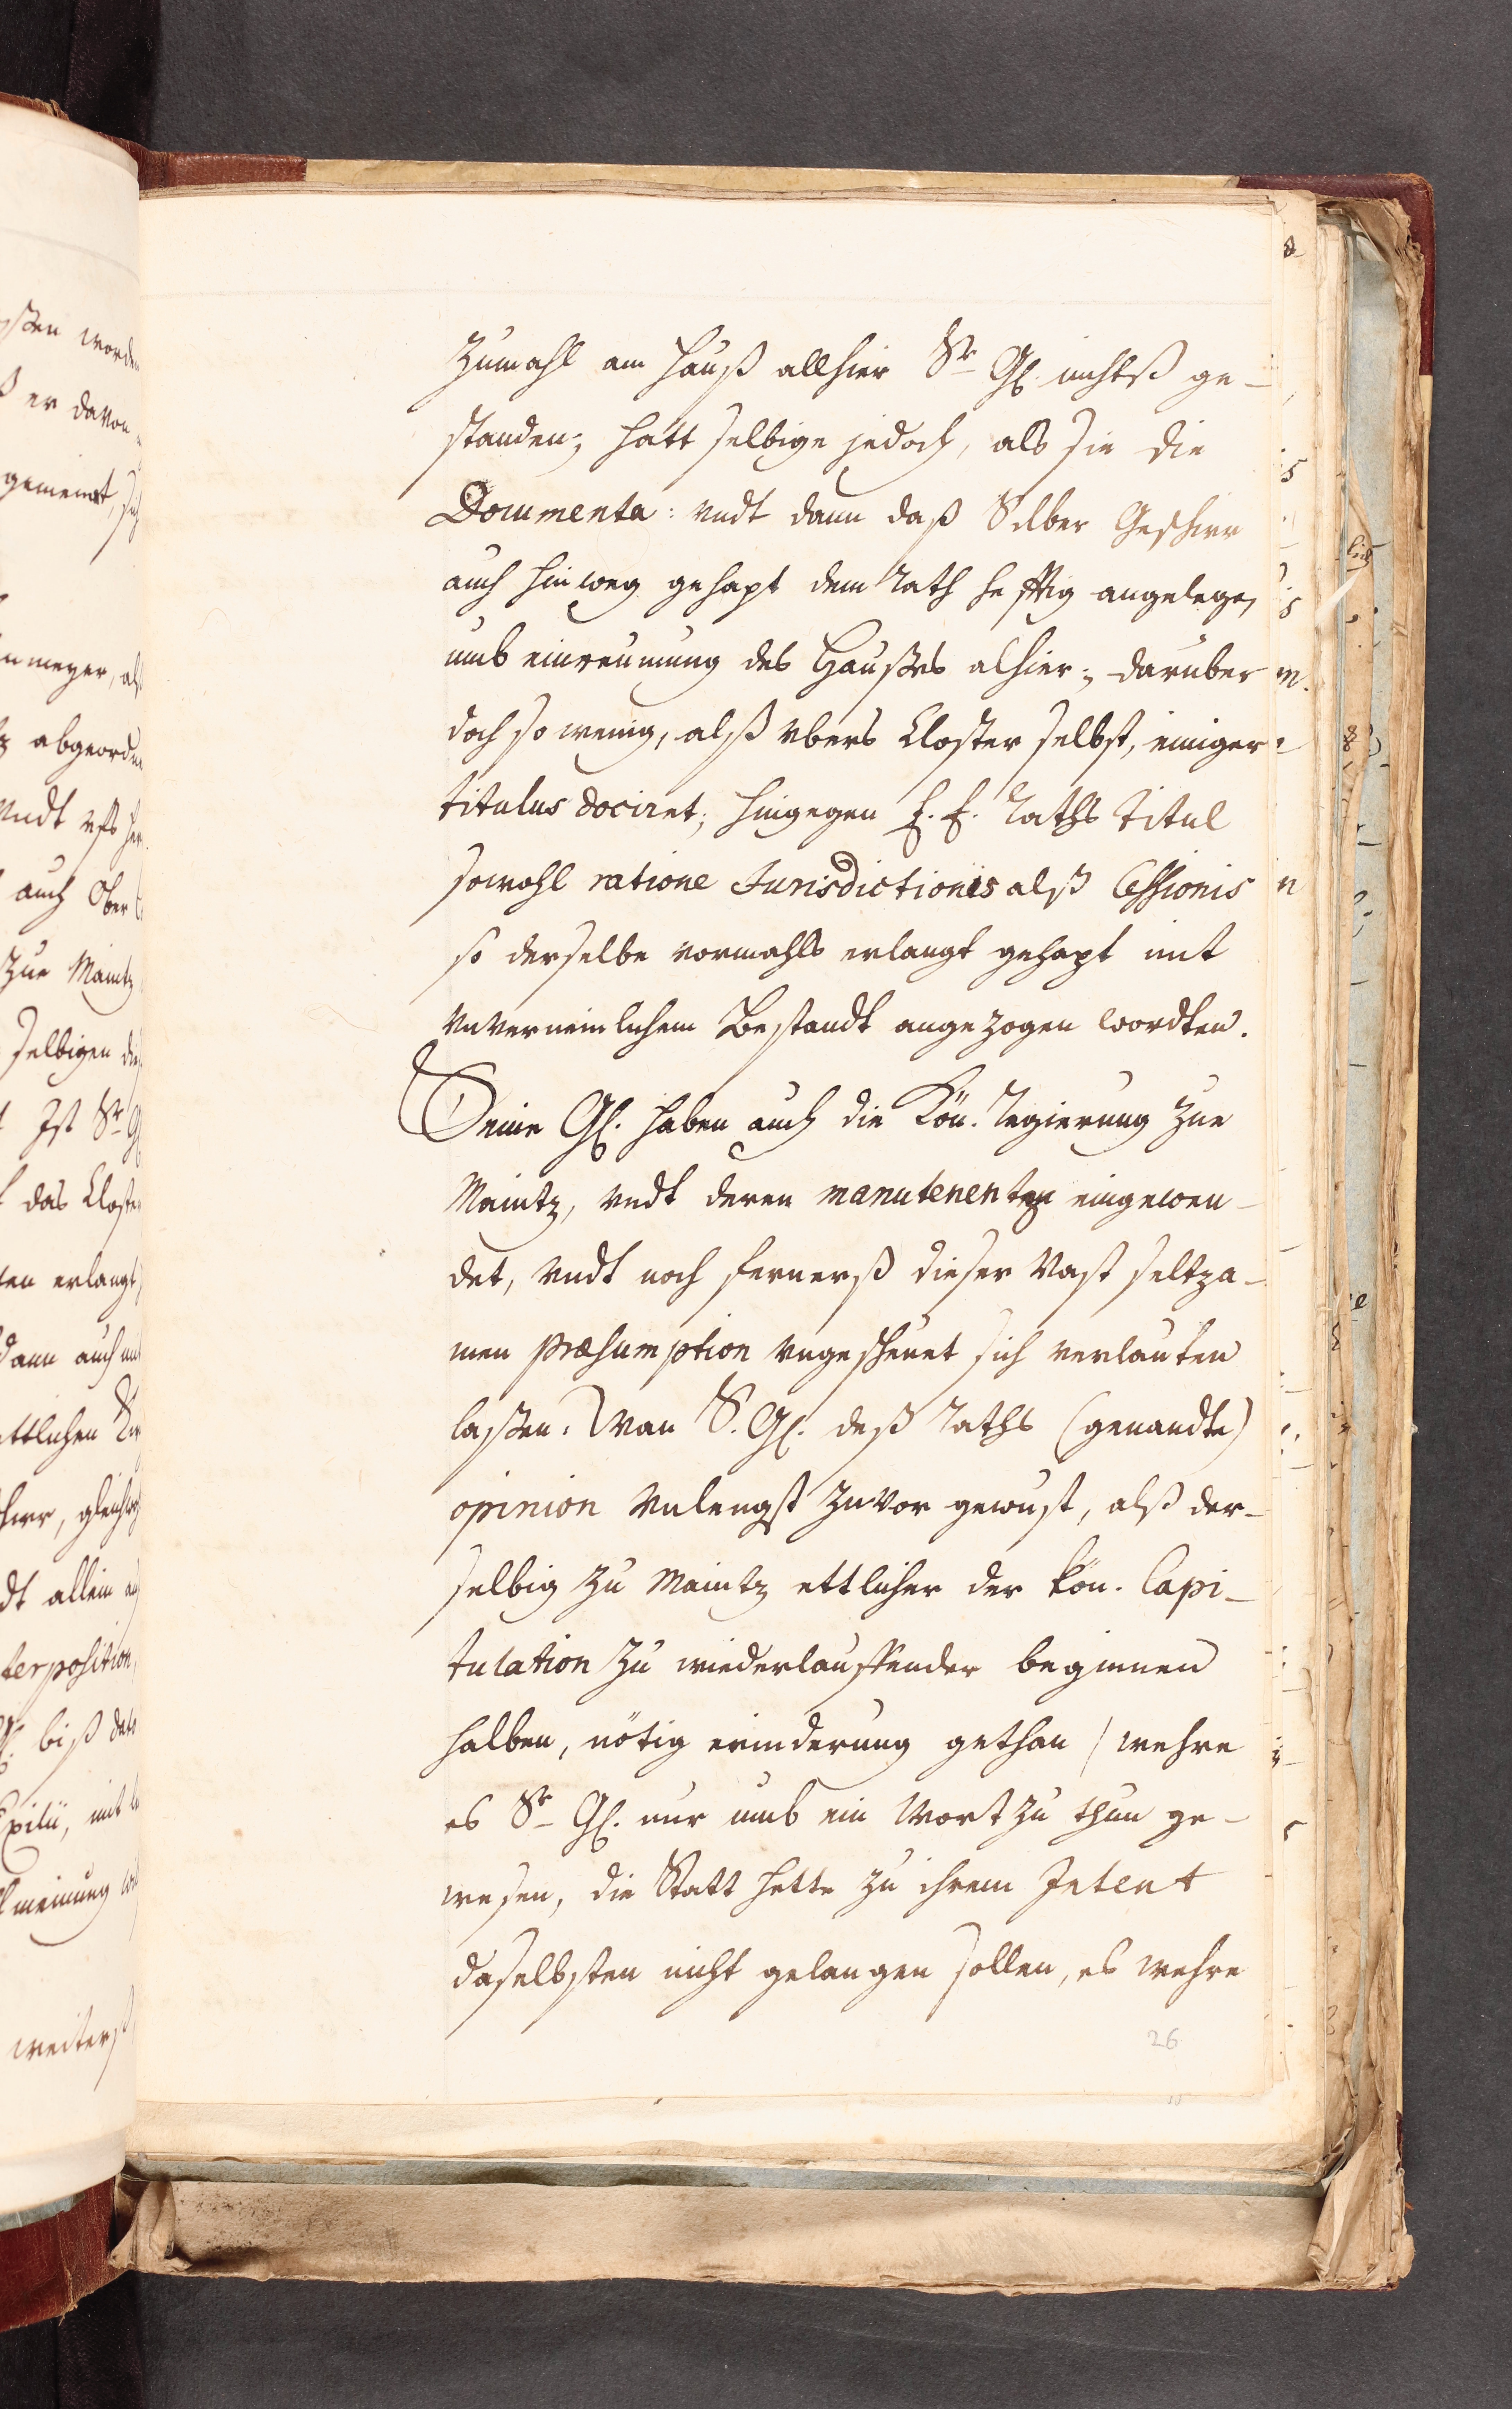 zumahl am Hauß allhier Sr Gl. nichtß ge-
standen; hatt selbige jedoch, als sie die
Documenta: vndt dann daß Silber Geschirr
auch hinweg gehapt dem Rath hefftig angelegen,
umb einreumung des Haußes alhier; darüber
doch so wenig, alß vbers Closter selbst, einiger
titulus dociret; hingegen E. E. Raths Titul
sowohl ratione Jurisdictionis alß Cessionis
so derselbe vormahls erlangt gehapt mit
vnverneinlichem Bestandt angezogen wordten.
Seine Gl. haben auch die Kön. Regierung zue
Maintz, vndt deren manutenentz eingewen-
det, vndt noch fernerß dieser Vast seltza-
men præsumption vngescheuet sich verlauten
laßen: Wan S. Gl. deß Raths (genandte)
opinion vnlengst zuvor gewust, alß der-
selbig zu Maintz ettlicher der Kön. Capi-
tulation zu wiederlauffender beginnen
halben, nötig erinderung gethan / wehre
es Sr Gl. nur umb ein Wort zu thun ge-
wesen, die Statt hette zu ihrem Intent
daselbsten nicht gelangen sollen, es wehre
26